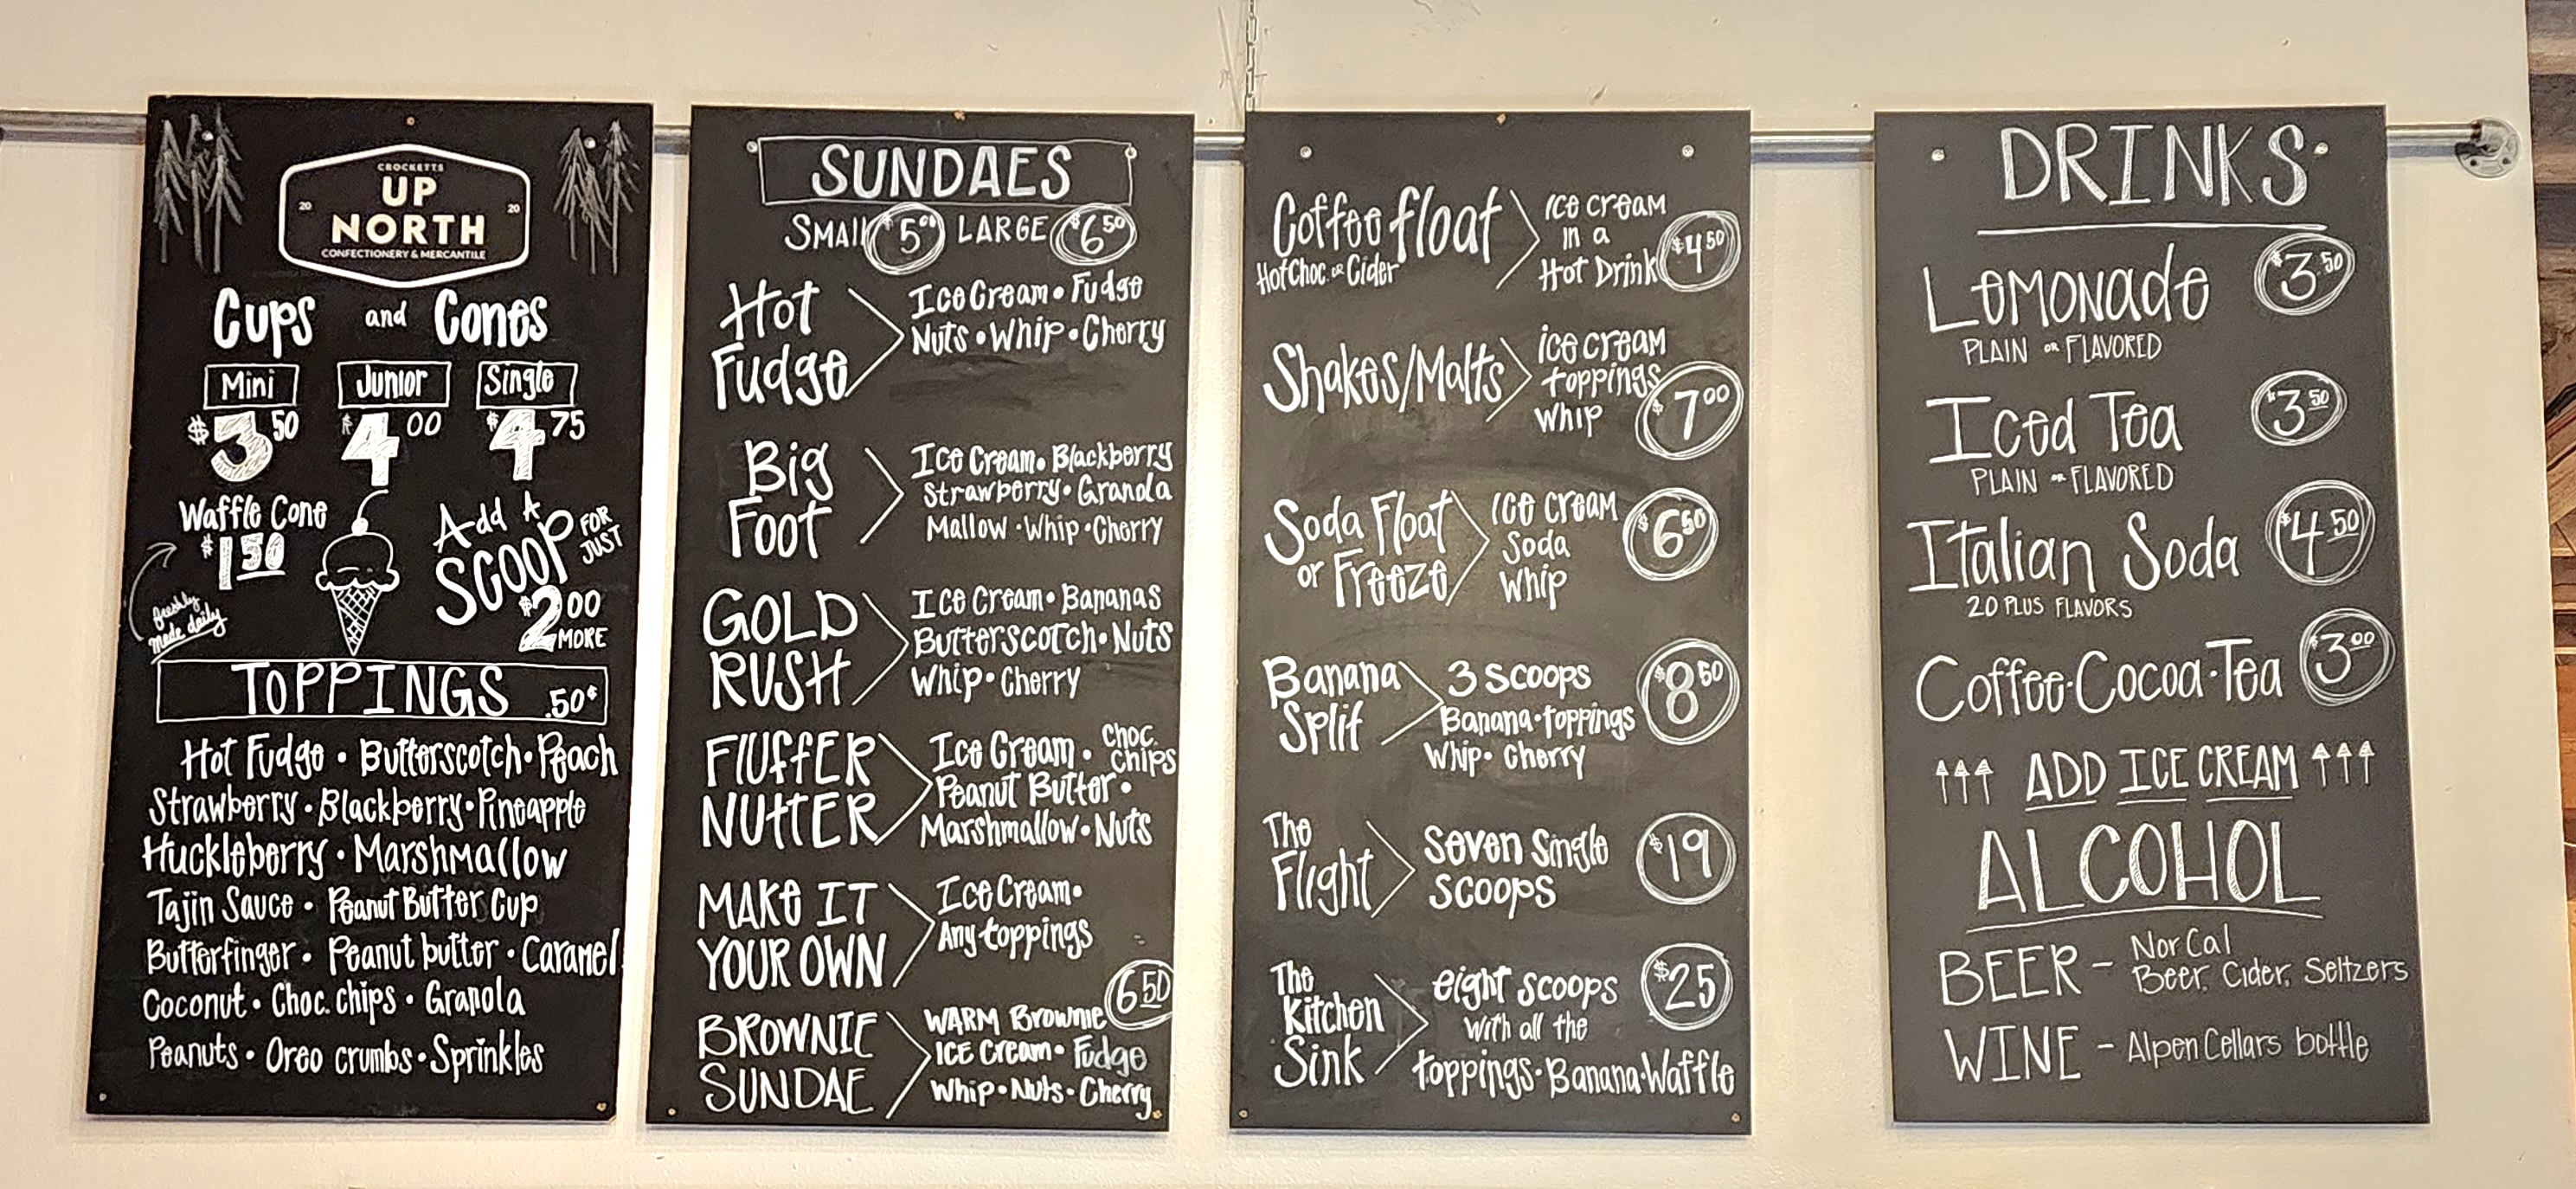 CROCKETTS
UP
20 NORTH 20
CONFECTIONERY & MERCANTILE
Cups and Cones
Mini Junior Single
$3.50 $4.00 $4.75
Waffle Cone
$1.50
freshly
made daily
Add A
SCOOP
FOR
JUST
$2.00
MORE
TOPPINGS .50¢
Hot Fudge • Butterscotch • Peach
Strawberry • Blackberry • Pineapple
Huckleberry • Marshmallow
Tajin Sauce • Peanut Butter Cup
Butterfinger • Peanut butter • Caramel
Coconut • Choc. chips • Granola
Peanuts • Oreo crumbs • Sprinkles
SUNDAES
SMALL $5.00 LARGE $6.50
Hot
Fudge
Ice Cream • Fudge
Nuts • Whip • Cherry
Big
Foot
Ice Cream • Blackberry
Strawberry • Granola
Mallow • Whip • Cherry
GOLD
RUSH
Ice Cream • Bananas
Butterscotch • Nuts
Whip • Cherry
FlUffER
NUttER
Ice Cream • choc. chips
Peanut Butter •
Marshmallow • Nuts
MAKE IT
YOUR OWN
Ice Cream •
Any toppings
BROWNIE
SUNDAE
6.50
WARM Brownie
ICE Cream • Fudge
Whip • Nuts • Cherry
Coffee float
Hot Choc. or Cider
Ice cream
in a
Hot Drink
$4.50
Shakes/Malts
ice cream
toppings
whip
$7.00
Soda Float
or Freeze
Ice cream
Soda
Whip
$6.50
Banana
Split
3 scoops
Banana • toppings
Whip • Cherry
$8.50
The
Flight
seven single
scoops
$19
The
Kitchen
Sink
eight scoops
with all the
toppings • Banana • Waffle
$25
DRINKS
Lemonade $3.50
PLAIN OR FLAVORED
Iced Tea $3.50
PLAIN OR FLAVORED
Italian Soda $4.50
20 PLUS FLAVORS
Coffee • Cocoa • Tea $3.00
↑↑↑ ADD ICE CREAM ↑↑↑
ALCOHOL
BEER – NorCal
Beer, Cider, Seltzers
WINE – Alpen Cellars bottle